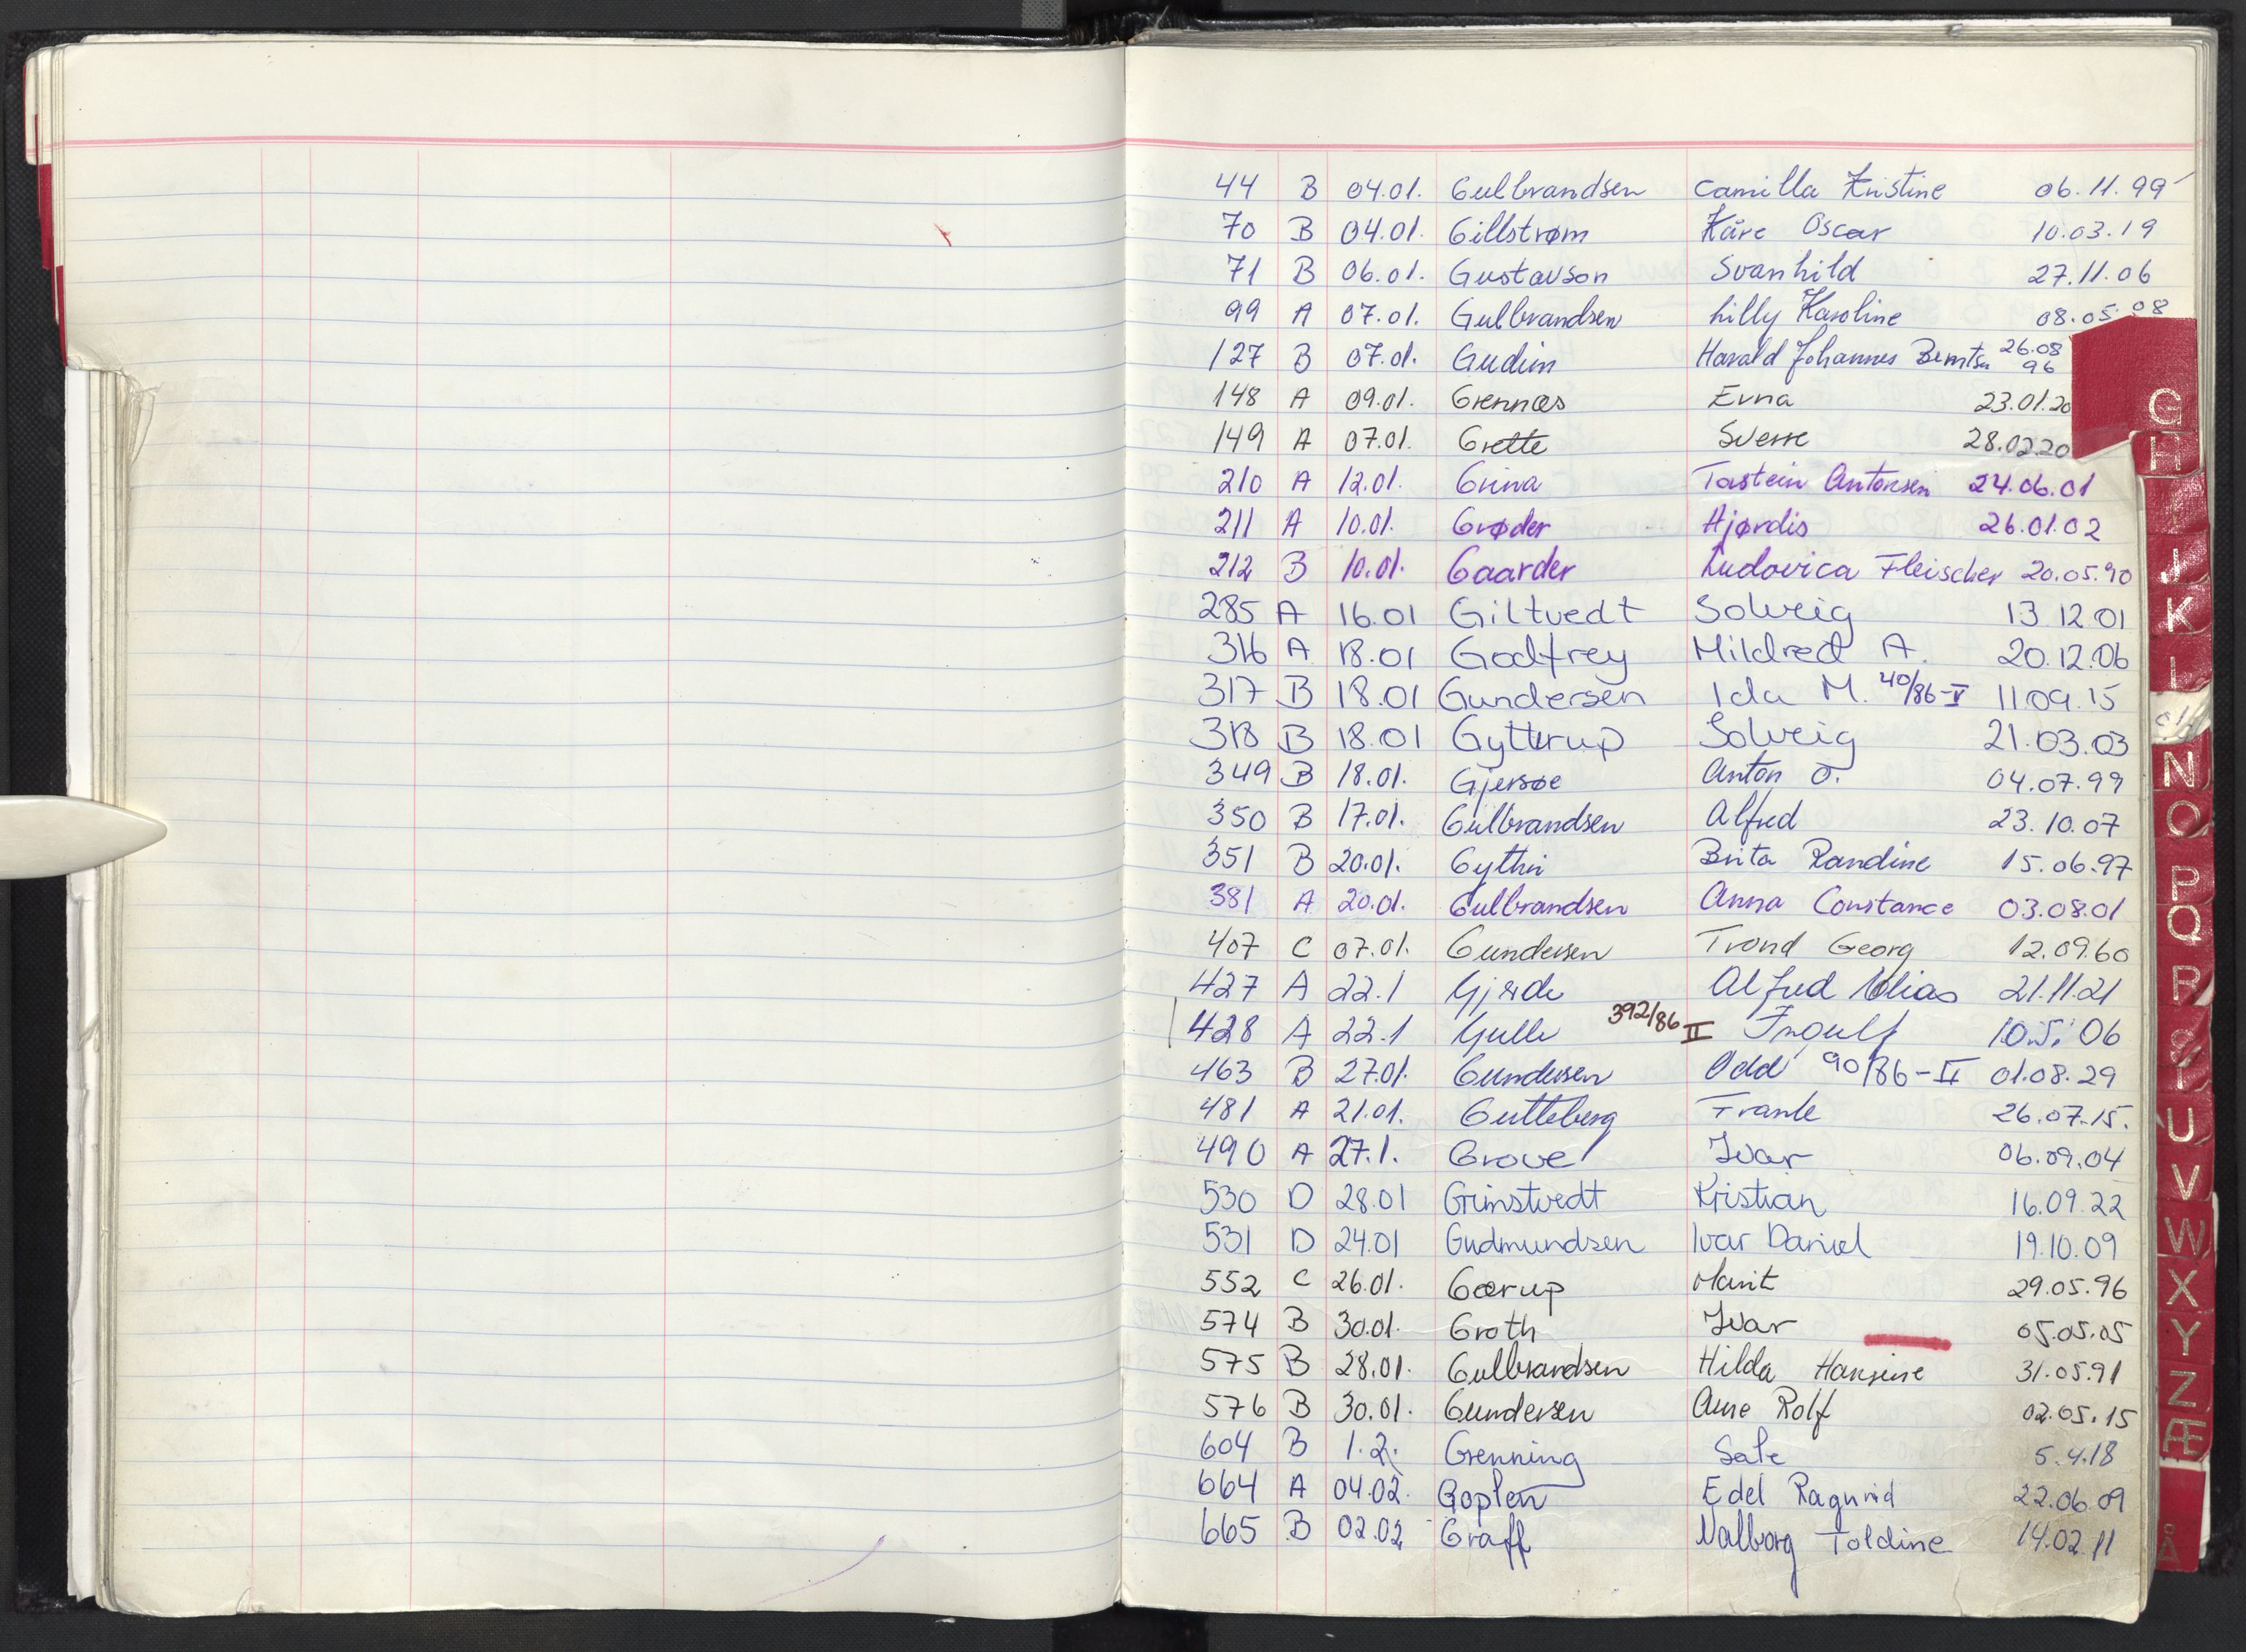 44 B 04.01. Gulbrandsen Camilla Kristine 06.11.99
70 B 04.01. Gillstrøm Kåre Oscar 10.03.19
71 B 06.01. Gustavson Svanhild 27.11.06
99 A 07.01. Gulbrandsen Lilly Karoline 08.05.08
127 B 07.01. Gudim Harald Johannes Berntsn 26.08 96
148 A 09.01. Grennæs Erna 23.01.20
149 A 07.01. Grette Sverre 28.02.20
210 A 12.01. Grina Torstein Antonsen 24.06.01
211 A 10.01. Grøder Hjørdis 26.01.02
212 B 10.01. Gaarder Ludovica Fleischer 20.05.90
285 A 16.01 Giltvedt Solveig 13 12.01
316 A 18.01 Godfrey Mildred A. 20.12.06
317 B 18.01 Gundersen Ida M. 40/86-V 11 09.15
318 B 18.01 Gytterup Solveig 21.03.03
349 B 18.01. Gjersøe Anton O. 04.07.99
350 B 17.01. Gulbrandsen Alfred 23.10.07
351 B 20.01. Gythri Brita Randine 15.06.97
381 A 20.01. Gulbrandsen Anna Constance 03.08.01
407 C 07.01. Gundersen Trond Georg 12.09.60
427 A 22.1 Gjerde Alfred 21.11.21
428 A 22.1 Gulli 392/86 II Ingulf 10.5. 06
463 B 27.01. Gundersen Odd 90/86-II 01.08.29
481 A 21.01. Gutteberg Frank 26.07.15.
490 A 27.1. Grove Ivar 06.09.04
530 D 28.01 Grimstvedt Kristian 16.09.22
531 D 24.01 Gudmundsen Ivar Daniel 19.10.09
552 C 26.01. Gærup Marit 29.05.96
574 B 30.01. Groth Ivar 05.05.05
575 B 28.01. Gulbrandsen Hilda Hansine 31.05.91
576 B 30.01. Gundersen Arne Rolf 02.05.15
604 B 1.2. Grenning 5.4.18
664 A 04.02. Goplen Edel Ragnrid 22.06.09
665 B 02.02 Graff Valborg Toldine 14.02.11
G
H
J
K
L
N
O
P
Q
R
S
T
U
V
W
X
Y
Z
Æ
Å